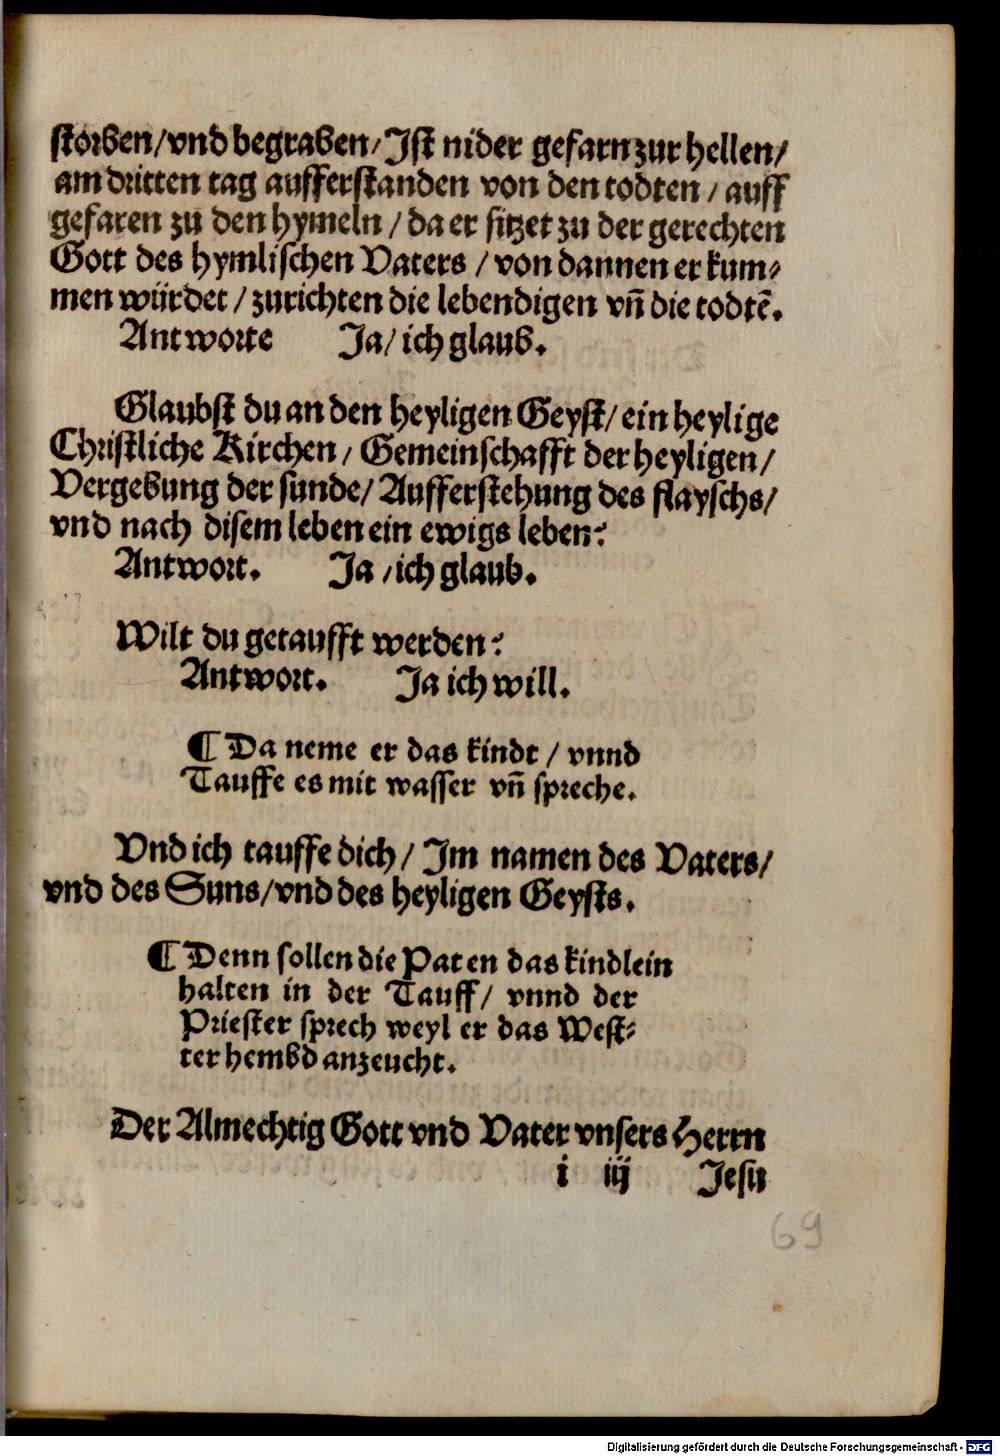 storben/vnd begraben/Ist nider gefarn zur hellen/
am dritten tag aufferstanden von den todten/auff
gefaren zu den hymeln/da er sitzet zu der gerechten
Gott des hymlischen Vaters/von dannen er kum⸗
men würdet/zurichten die lebendigen vñ die todtē.
Antworte Ja/ich glaub.
Glaubst du an den heyligen Geyst/ein heylige
Christliche Kirchen/Gemeinschafft der heyligen/
Vergebung der sunde/Aufferstehung des flayschs/
vnd nach disem leben ein ewigs leben?
Antwort. Ja/ich glaub.
Wilt du getaufft werden?
Antwort. Ja ich will.
¶ Da neme er das kindt/vnnd
Tauffe es mit wasser vñ spreche.
Vnd ich tauffe dich/Im namen des Vaters/
vnd des Suns/vnd des heyligen Geysts.
¶ Denn sollen die Paten das kindlein
halten in der Tauff/vnnd der
Priester sprech weyl er das West⸗
ter hembd anzeucht.
Der Almechtig Gott vnd Vater vnsers Herrn
i iij Jesu
69
Digitalisierung gefördert durch die Deutsche Forschungsgemeinschaft - DFG